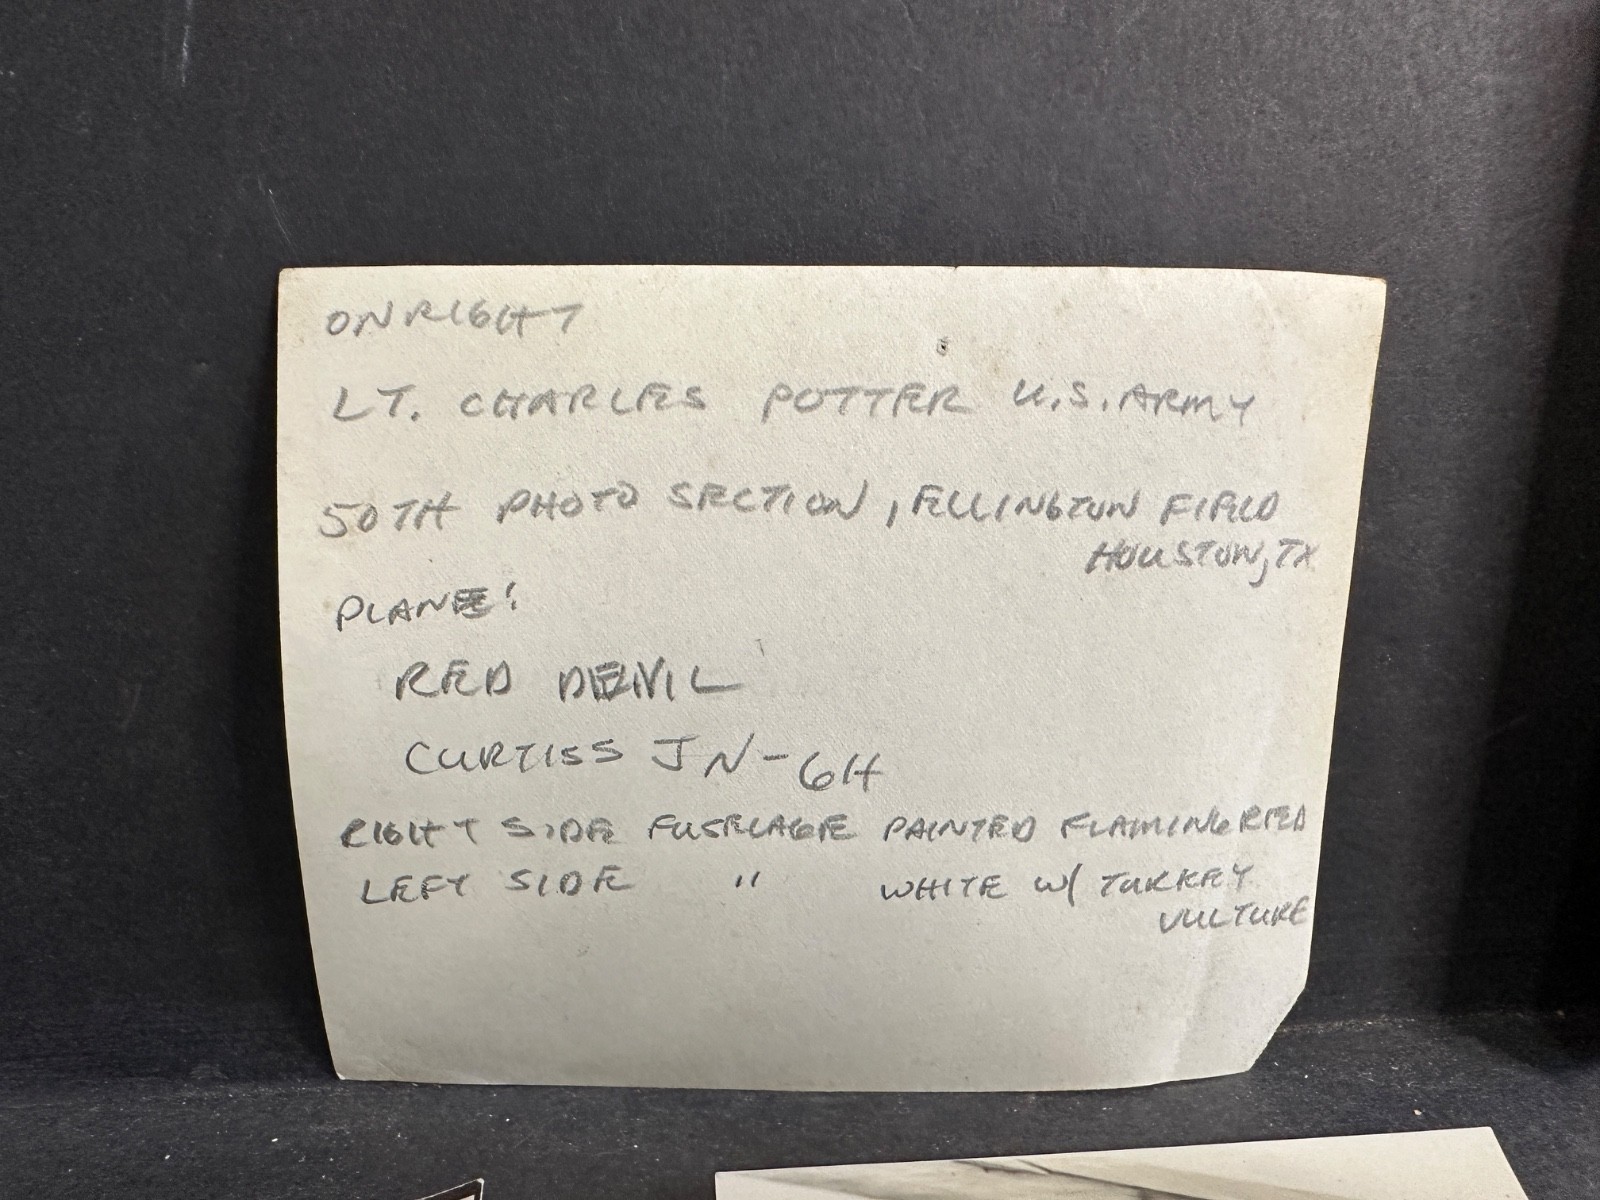 ON RIGHT
LT. CHARLES POTTER U.S. ARMY
50TH PHOTO SECTION, ELLINGTON FIELD
HOUSTON, TX
PLANE:
RED DEVIL
CURTISS JN-6H
RIGHT SIDE FUSELAGE PAINTED FLAMING RED
LEFT SIDE " WHITE W/ TURKEY
VULTURE